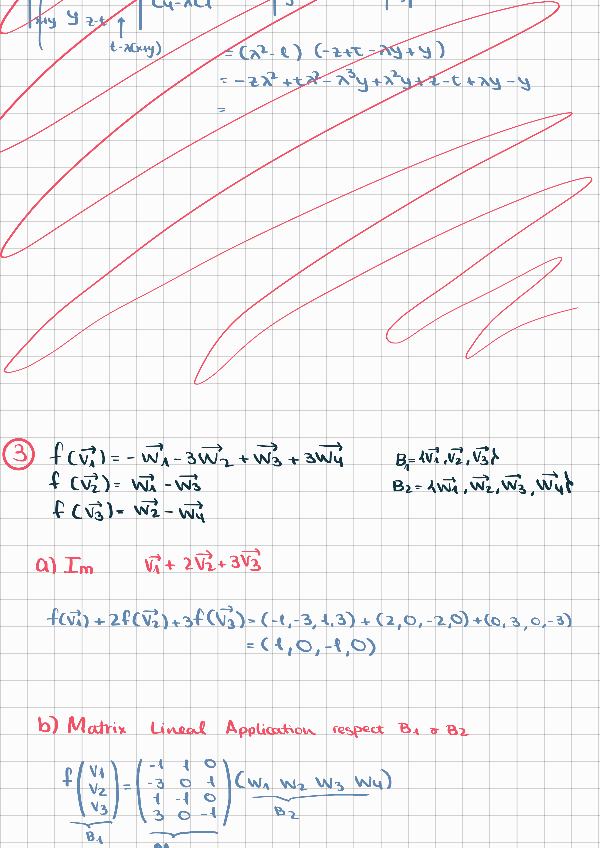 x+y y z-t
t-λ(x+y)
= (λ²-1) (-z+t-λy+y)
= -zλ²+tλ²-λ³y+λ²y+z-t+λy-y
=
3 f(v₁) = -w₁-3w₂+w₃+3w₄ B₁={v₁,v₂,v₃}
f(v₂)= w₁-w₃ B₂={w₁,w₂,w₃,w₄}
f(v₃)= w₂-w₄
a) Im v₁+2v₂+3v₃
f(v₁)+2f(v₂)+3f(v₃)=(-1,-3,1,3)+(2,0,-2,0)+(0,3,0,-3)
=(1,0,-1,0)
b) Matrix Lineal Application respect B₁ & B₂
-1 1 0
f(v₁ v₂ v₃) = -3 0 1 (w₁ w₂ w₃ w₄)
1 -1 0
3 0 -1
B₁ B₂